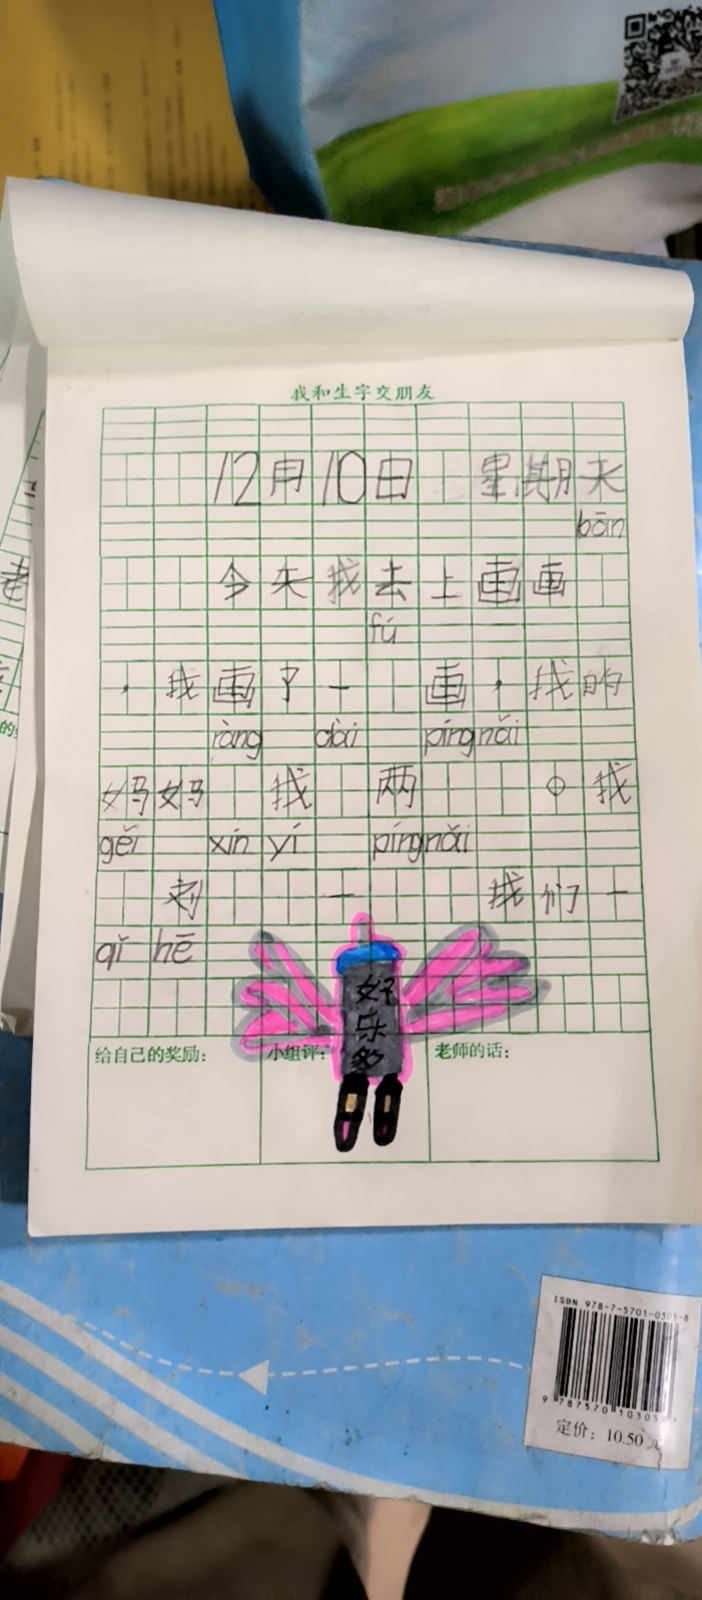 我和生字交朋友
12月10日 星期天
bān
今天我去上画画
fú
，我画了一 画，我的
ràng dài píng nǎi
妈妈 我 两 。我
gěi xín yí píng nǎi
刘 一 我们一
qǐ hē
好乐多
给自己的奖励： 小组评： 老师的话：
ISBN 978-7-5701-0305-8
9 787570 10305
定价：10.50 元